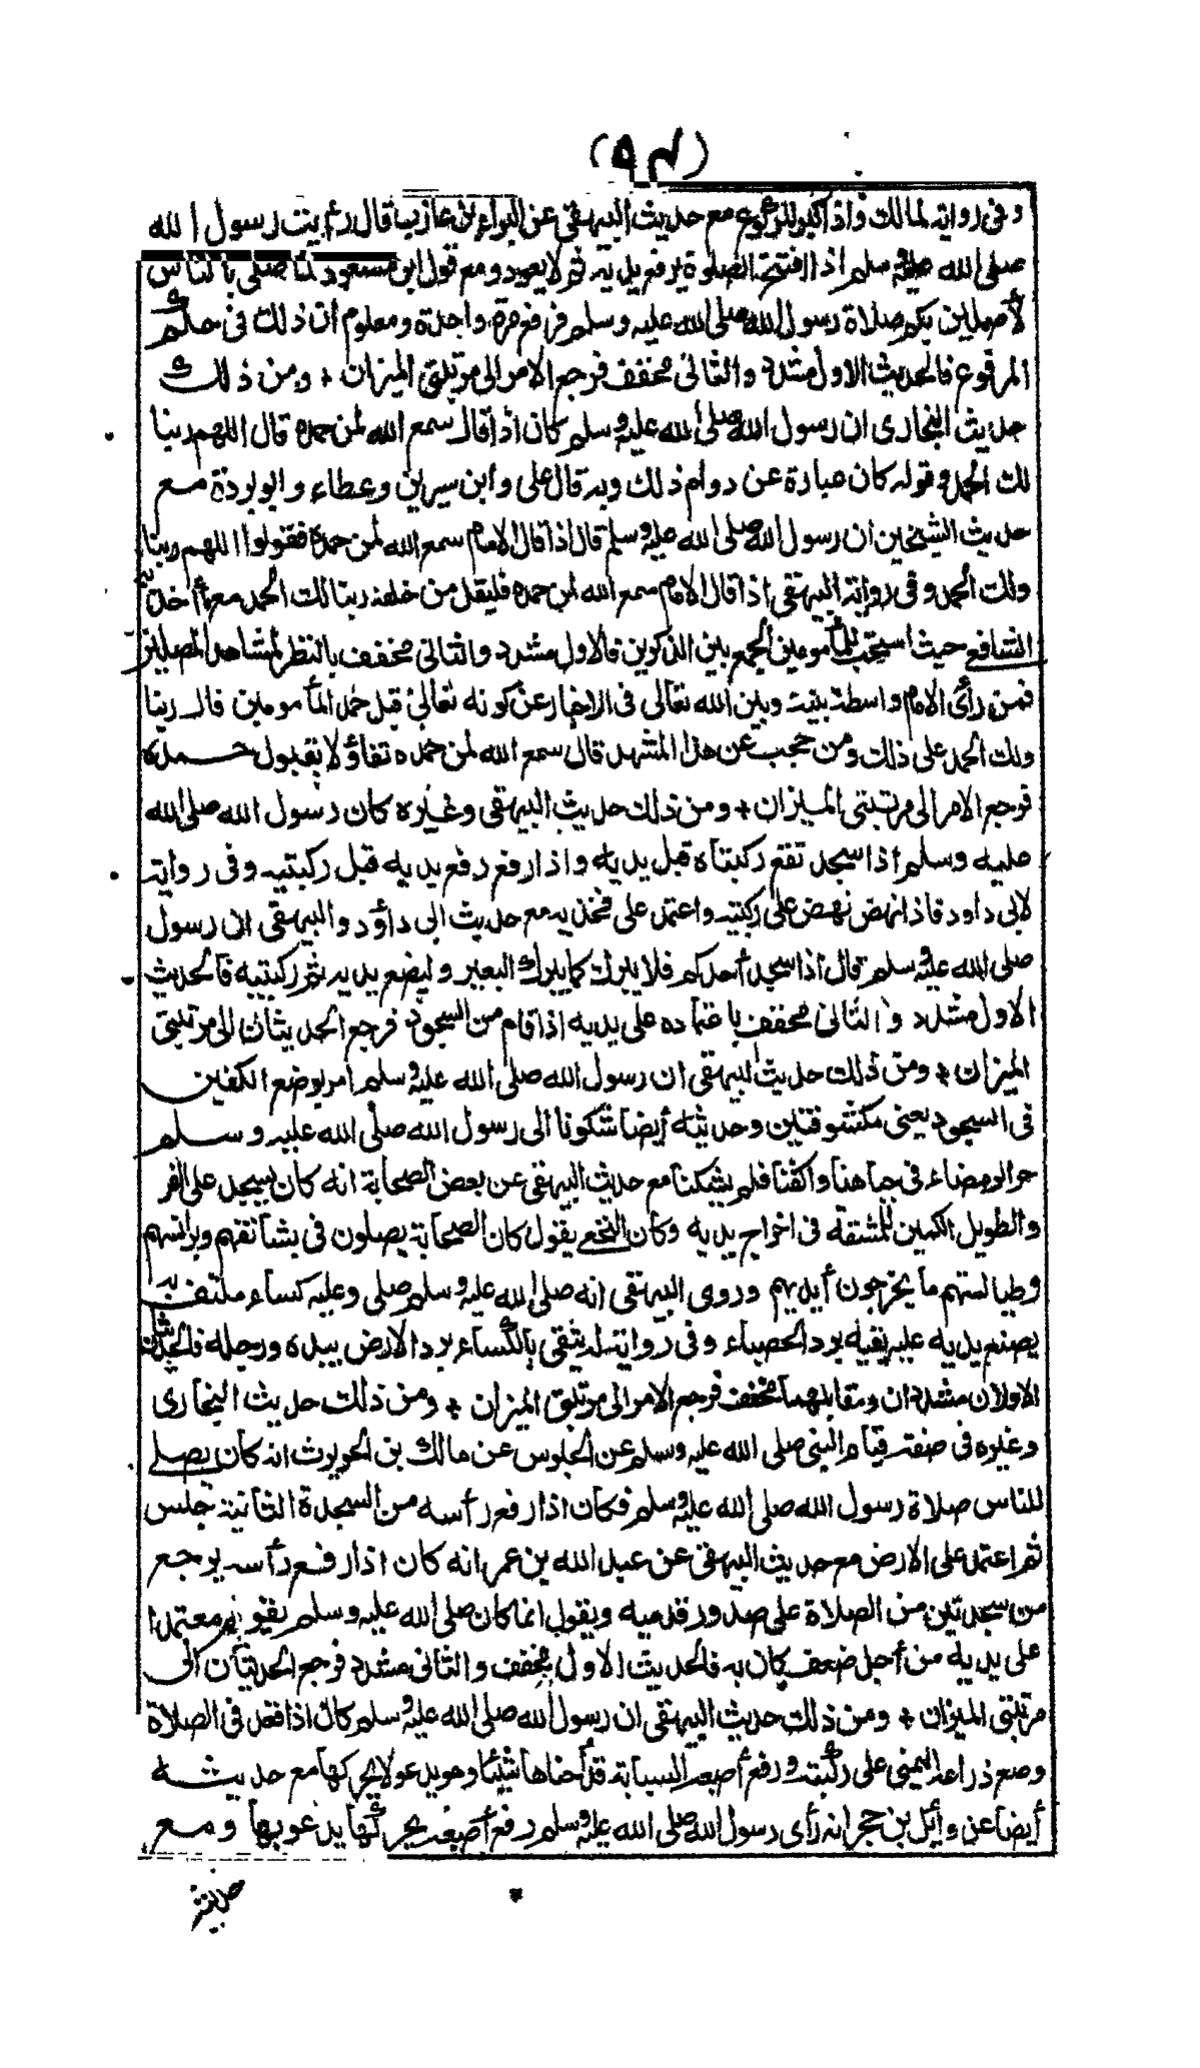 (٩٤)
وفى رواية لمالك واذا كبر للركوع مع حديث البيهقى عن البراء بن عازب قال رأيت رسول الله
صلى الله عليه وسلم اذا افتتح الصلوة يرفع يديه ثم لا يعيد ومع قول ابن مسعود لما صلى بالناس
لأصلين بكم صلاة رسول الله صلى الله عليه وسلم فرفع مرة واحدة ومعلوم ان ذلك فى حكم
المرفوع فالحديث الاول مشدد والثانى مخفف فرجع الامر الى مرتبتى الميزان + ومن ذلك
حديث البخارى ان رسول الله صلى الله عليه وسلم كان اذا قال سمع الله لمن حمده قال اللهم ربنا
لك الحمد وقوله كان عبارة عن دوام ذلك وبه قال على وابن سيرين وعطاء وابو بردة مع
حديث الشيخين ان رسول الله صلى الله عليه وسلم قال اذا قال الامام سمع الله لمن حمده فقولوا اللهم ربنا
ولك الحمد وفى رواية البيهقى اذا قال الامام سمع الله لمن حمده فليقل من خلفه ربنا لك الحمد مع ما أخذ به
الشافعى حيث استحب للمأمومين الجمع بين الذكرين فالاول مشدد والثانى مخفف بالنظر لمشاهد المصلين
فمن رأى الامام واسطة بينه وبين الله تعالى فى الاخبار عن كونه تعالى قبل حمد المأمومين قال ربنا
ولك الحمد على ذلك ومن حجب عن هذا المشهد قال سمع الله لمن حمده تفاؤلا بقبول حمده
فرجع الامر الى مرتبتى الميزان + ومن ذلك حديث البيهقى وغيره كان رسول الله صلى الله
عليه وسلم اذا سجد تقع ركبتاه قبل يديه واذا رفع رفع يديه قبل ركبتيه وفى رواية
لابى داود فاذا نهض نهض على ركبتيه واعتمد على فخذيه مع حديث ابى داؤد والبيهقى ان رسول
صلى الله عليه وسلم قال اذا سجد أحدكم فلا يبرك كما يبرك البعير وليضع يديه ثم ركبتيه فالحديث
الاول مشدد والثانى مخفف باعتماده على يديه اذا قام من السجود فرجع الحديثان الى مرتبتى
الميزان + ومن ذلك حديث البيهقى ان رسول الله صلى الله عليه وسلم امر بوضع الكفين
فى السجود يعنى مكشوفتين وحديثه أيضا شكونا الى رسول الله صلى الله عليه وسلم
حر الرمضاء فى جباهنا واكفنا فلم يشكنا مع حديث البيهقى عن بعض الصحابة انه كان يسجد على الفر
والطويل الكمين للمشقة فى اخراج يديه وكان النخعى يقول كان الصحابة يصلون فى بساتقهم وبرانسهم
وطيالستهم ما يخرجون أيديهم وروى البيهقى انه صلى الله عليه وسلم صلى وعليه كساء ملتف به
يصنع يديه عليه يقيه برد الحصباء وفى رواية له يتقى بالكساء برد الارض بيده ورجله فالحديثان
الاولان مشددان ومقابلهما مخفف فرجع الامر الى مرتبتى الميزان + ومن ذلك حديث البخارى
وغيره فى صفة قيام النبى صلى الله عليه وسلم عن الجلوس عن مالك بن الحويرث انه كان يصلى
للناس صلاة رسول الله صلى الله عليه وسلم فكان اذا رفع رأسه من السجدة الثانية جلس
ثم اعتمد على الارض مع حديث البيهقى عن عبد الله بن عمر انه كان اذا رفع رأسه يرجع
من سجدتين من الصلاة على صدور قدميه ويقول انما كان صلى الله عليه وسلم يقوم معتمدا
على يديه من أجل ضعف كان به فالحديث الاول مخفف والثانى مشدد فرجع الحديثان الى
مرتبتى الميزان + ومن ذلك حديث البيهقى ان رسول الله صلى الله عليه وسلم كان اذا قعد فى الصلاة
وضع ذراعه اليمنى على ركبته ورفع أصبعه السبابة قد أحناها شيئا وهو يدعو لا يحركها مع حديثه
أيضا عن وائل بن حجر انه رأى رسول الله صلى الله عليه وسلم رفع أصبعه يحركها يدعو بها ومع
حديث